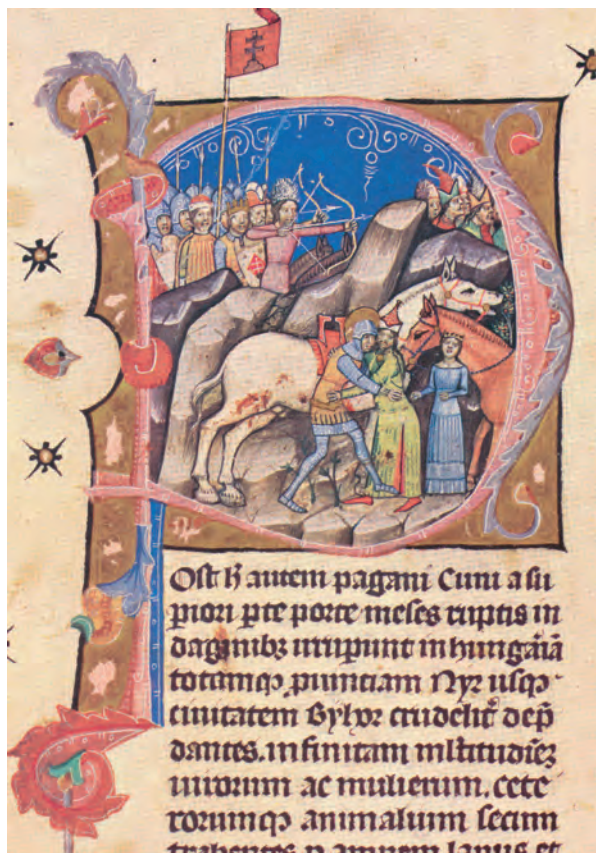 Ost h̄ autem pagani Cuni a su
piori pte porte meses ruptis in
daginibꝫ irrupunt in hungaiā
totamqꝫ puinciam Nyr usqꝫ
ciuitatem Byhor crudelit͛ dep̄
dantes. infinitam mltitudieꝫ
uirorum ac mulierum. cete
rorumqꝫ animalium secum
trahentes p amnem lapus et